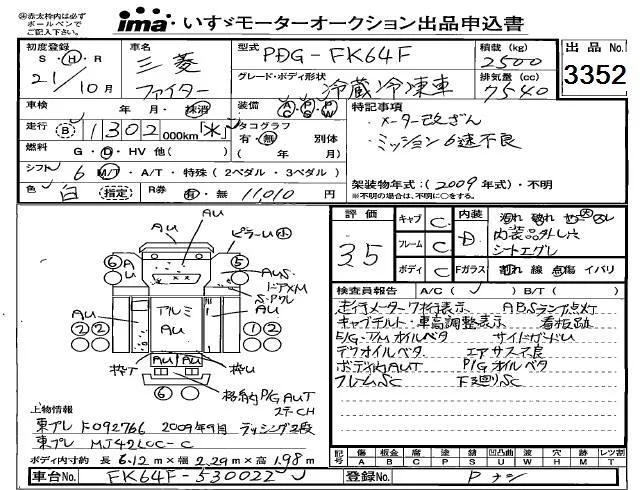 ㊟赤太枠内は必ず
ボールペンで
ご記入下さい。
ima いすゞモーターオークション出品申込書
初度登録 S・H・R 21/10月
車名 三菱 ファイター
型式 PDG-FK64F
積載 (kg) 2500
出品No. 3352
グレード・ボディ形状 冷蔵冷凍車
排気量 (cc) 7540
車検 年 月・抹消
装備 AC PS PW
特記事項
・メーター改ざん
・ミッション6速不良
走行 B 1302 000km
タコグラフ 有・無 別体
( 年 月)
燃料 G・D・HV 他( )
シフト 6 M/T・A/T・特殊(2ペダル・3ペダル)
架装物年式:(2009年式)・不明
※不明の場合は、不明に○をする。
色 白 指定 R券 有・無 11,010円
評価 3.5
キャブ C
フレーム C
ボディ C
内装 D
内装品外し穴
シートエグレ
Fガラス 割れ 線 点傷 イバリ
検査員報告 A/C( ) B/T( )
走行メーター7桁表示 ABSランプ点灯
キャブチルト・車高調整表示 看板跡
E/G・T/Mオイルベタ サイドガードU
デフオイルベタ エアサス不良
ボディ内AUT P/Gオイルベタ
フレームSC 下廻りSC
AU
ピラーU小
6
AU
5
AUS
ドアXM
S・Pワレ
AU
アルミ
AU
AU
2 2
1 2
AU AU
枠T
枠U
格納P/G AUT
ステーCH
上物情報
東プレ F092766 2009年9月 ラッシング2段
東プレ MJ42LCC-C
ボディ内寸約 長 6.12m×幅 2.29m×高 1.98m
記号 傷 板金 腐 塗 錆 凹凸曲 波 穴 跡 レツ割
A B C P S U W H M T
車台No. FK64F-530022
登録No. Pナシ